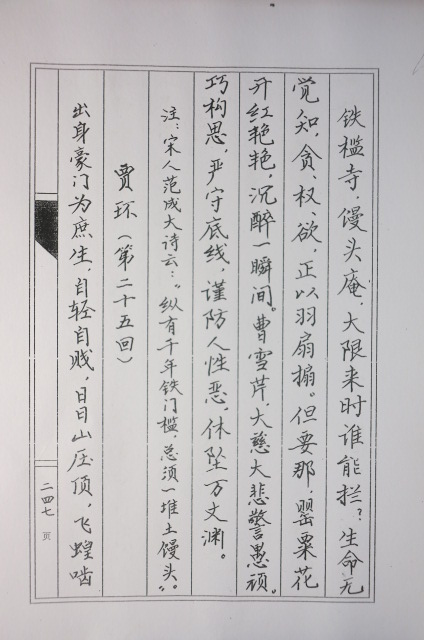 铁槛寺，馒头庵，大限来时谁能拦？生命无
觉知，贪、权、欲，正以羽扇搧。但要那，罂粟花
开红艳艳，沉醉一瞬间。曹雪芹，大慈大悲警愚顽。
巧构思，严守底线，谨防人性恶，休坠万丈渊。
注：宋人范成大诗云：“纵有千年铁门槛，总须一堆土馒头”。
贾环（第二十五回）
出身豪门为庶生，自轻自贱，日日山压顶，飞蝗啮
二四七页